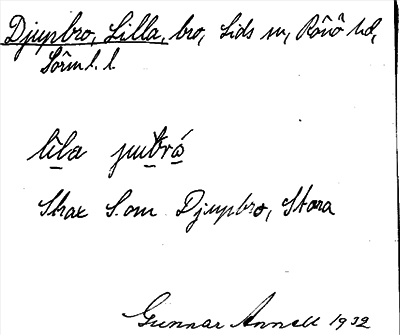 Djupbro, Lilla, bro, Lids sn, Rönö hd,
Sörml. l.
lila jubró
Strax S. om Djupbro, Stora
Gunnar Annell 1932